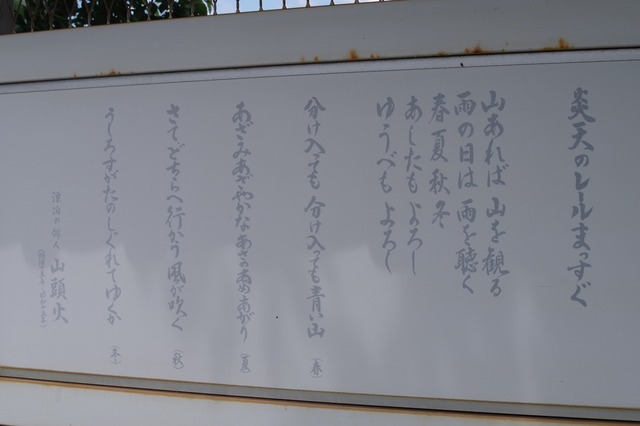 炎天のレールまっすぐ
山あれば 山を観る
雨の日は 雨を聴く
春夏秋冬
あしたも よろし
ゆうべも よろし
分け入っても 分け入っても 青い山 (春)
あざみあざやかなあさのあめあがり (夏)
さてどちらへ行かう 風が吹く (秋)
うしろすがたのしぐれてゆくか (冬)
漂泊の俳人 山頭火